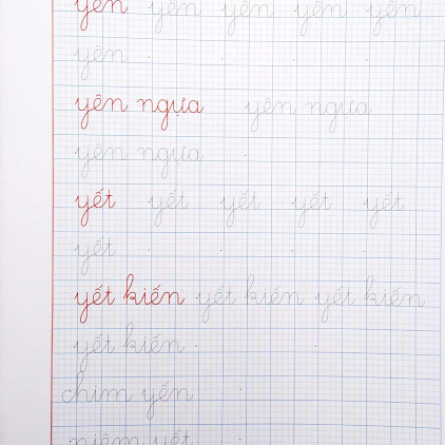 yên yên yên yên yên
yên
yên ngựa yên ngựa
yên ngựa
yết yết yết yết yết
yết
yết kiến yết kiến yết kiến
yết kiến
chim yến
niêm yết